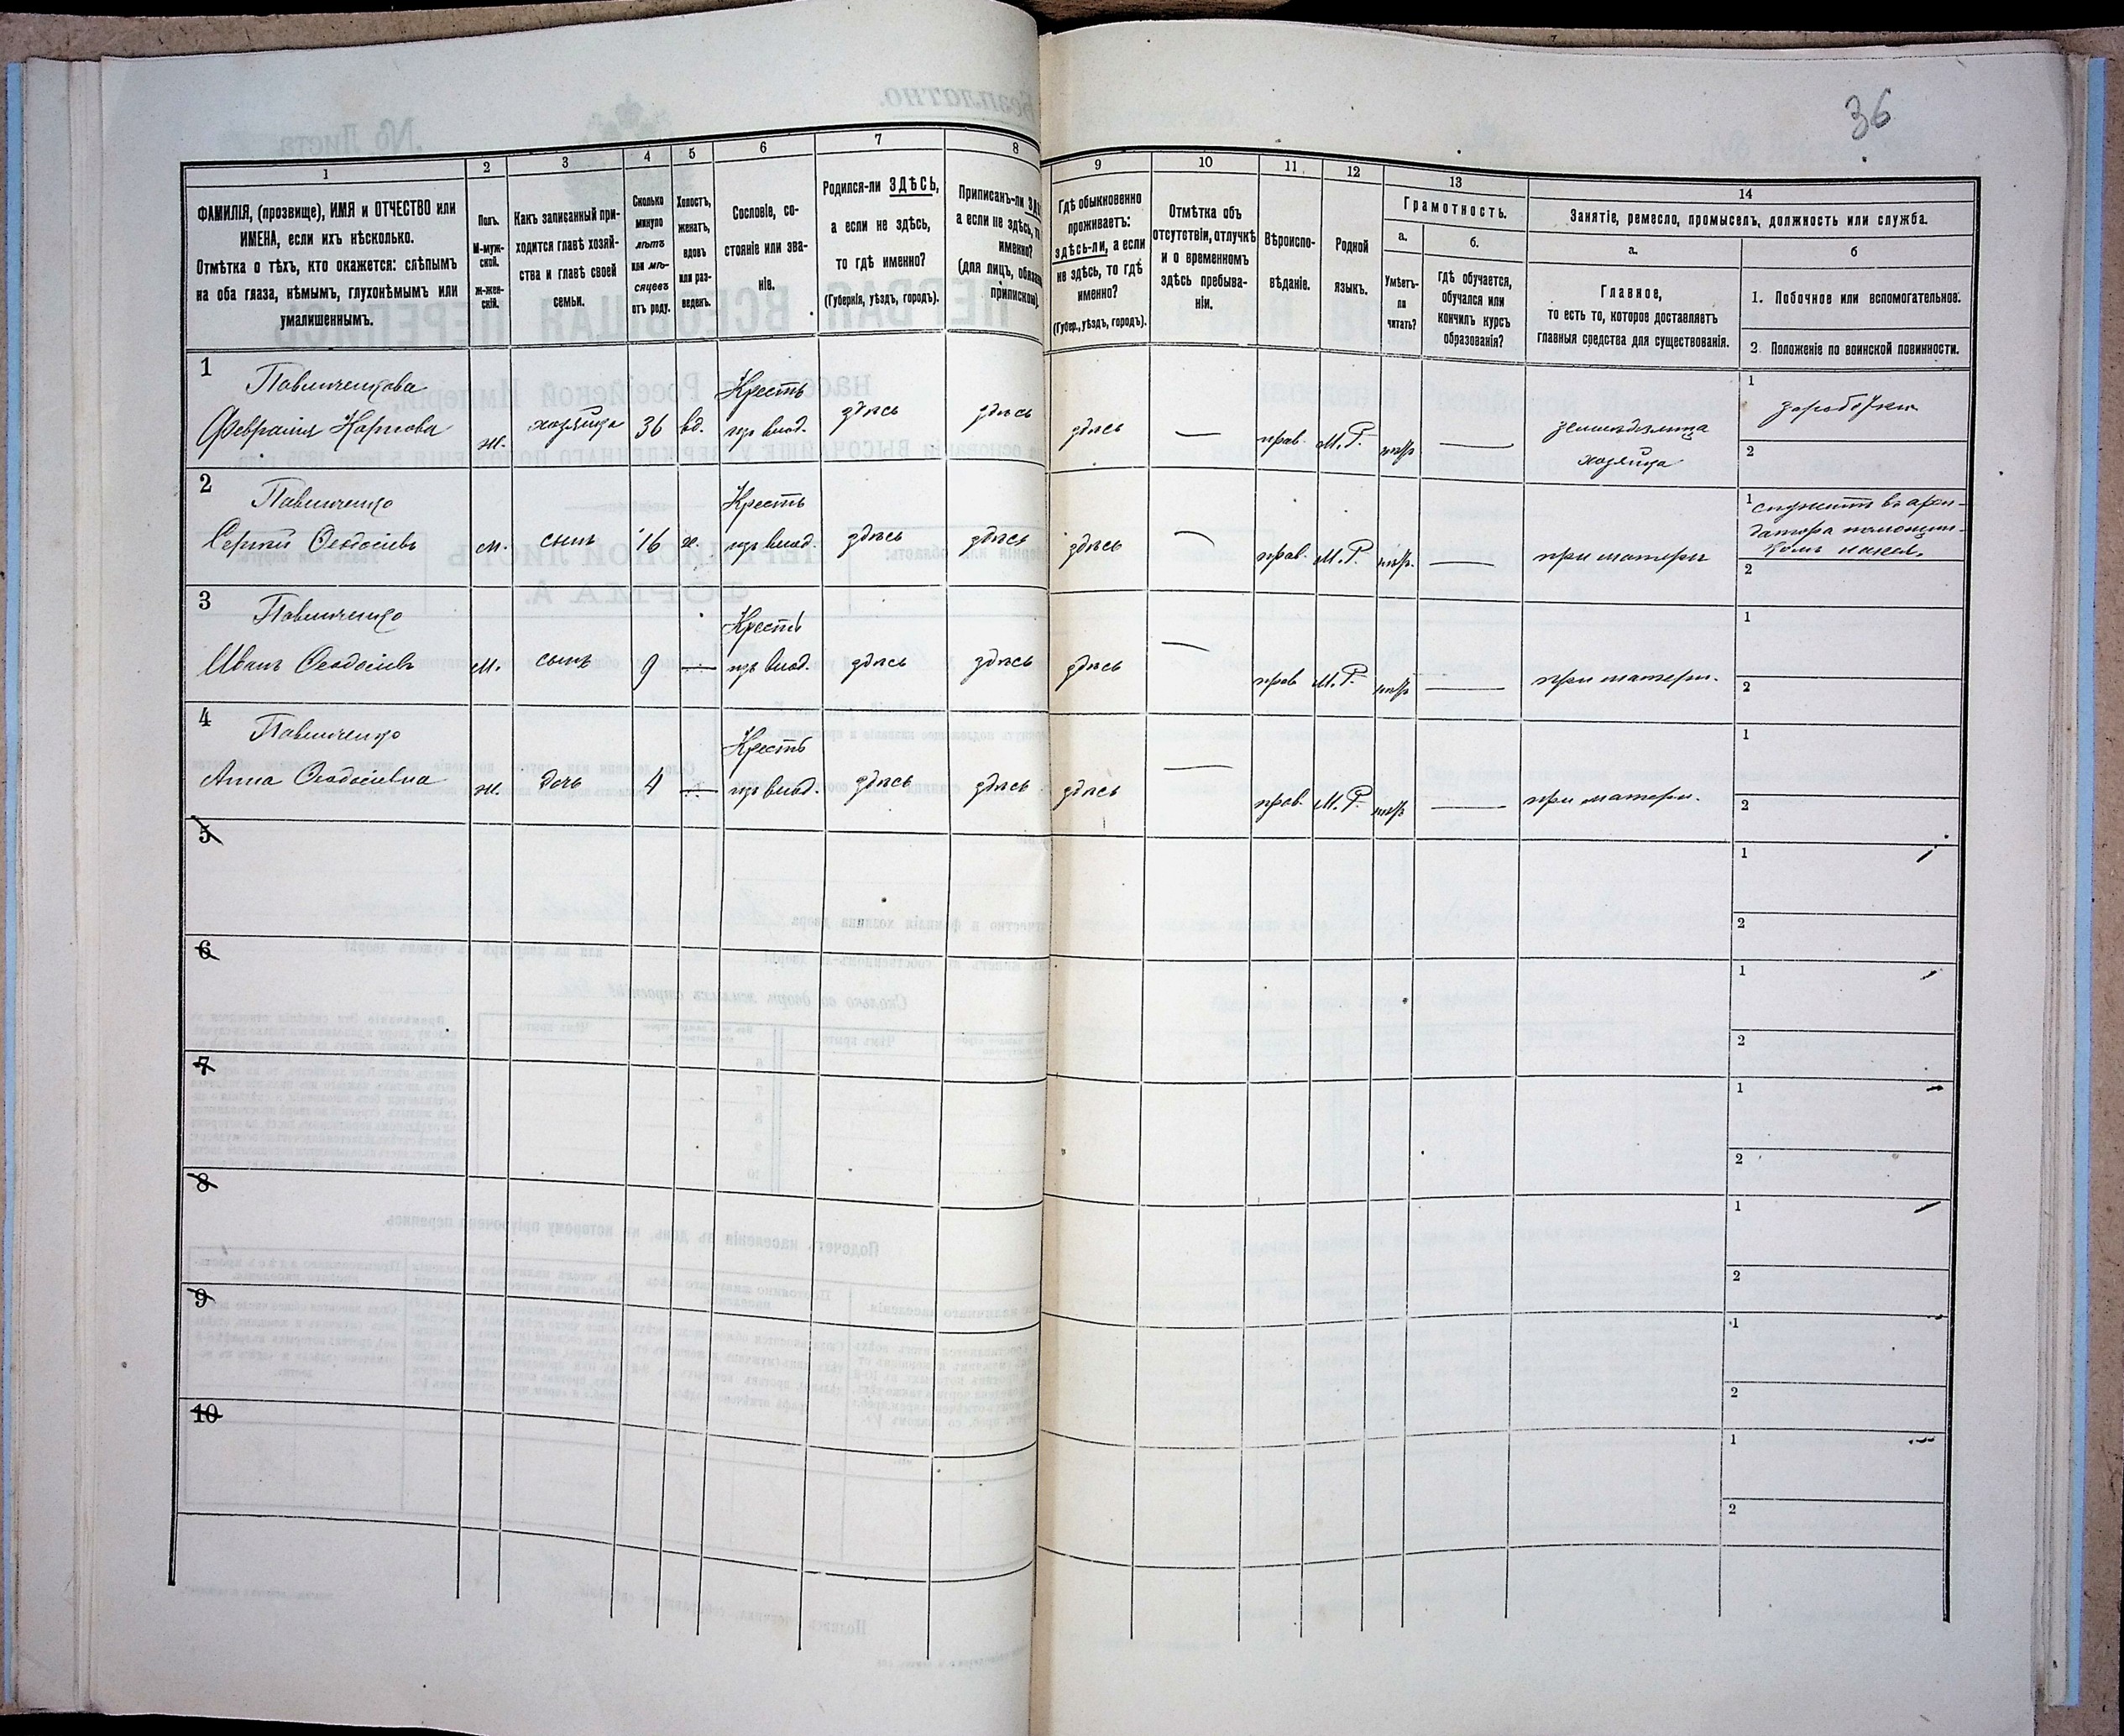 36
1
2
3
4
5
6
7
8
9
10
11
12
13
14
ФАМИЛІЯ, (прозвище), ИМЯ и ОТЧЕСТВО или
ИМЕНА, если ихъ нѣсколько.
Отмѣтка о тѣхъ, кто окажется: слѣпымъ
на оба глаза, нѣмымъ, глухонѣмымъ или
умалишеннымъ.
Полъ.
М-муж-
ской.
ж-жен-
скій.
Какъ записанный при-
ходится главѣ хозяй-
ства и главѣ своей
семьи.
Сколько
минуло
лѣтъ
или мѣ-
сяцевъ
отъ роду.
Холостъ,
женатъ,
вдовъ
или раз-
веденъ.
Сословіе, со-
стояніе или зва-
ніе.
Родился-ли ЗДѢСЬ,
а если не здѣсь,
то гдѣ именно?
(Губернія, уѣздъ, городъ).
Приписанъ-ли
а если не здѣсь,
именно?
(для лицъ,
припискою).
Гдѣ обыкновенно
проживаетъ:
здѣсь-ли, а если
не здѣсь, то гдѣ
именно?
(Губер., уѣздъ, городъ).
Отмѣтка объ
отсутствіи, отлучкѣ
и о временномъ
здѣсь пребыва-
ніи.
Вѣроиспо-
вѣданіе.
Родной
языкъ.
Грамотность.
а.
б.
Умѣетъ-
ли
читать?
гдѣ обучается,
обучался или
кончилъ курсъ
образованія?
Занятіе, ремесло, промыселъ, должность или служба.
а.
б
Главное,
то есть то, которое доставляетъ
главныя средства для существованія.
1. Побочное или вспомогательное.
2. Положеніе по воинской повинности.
1
Павличенкова
Февронія Карпова
ж.
хозяйка
36
вд.
Крестъ
изъ влад.
здѣсь
здѣсь
здѣсь
—
прав.
М.Р.
нтр
—
земледѣлица
хозяйка
1
заработки
2
2
Павличенко
Сергѣй Ѳеодосіевъ
м.
сынъ
16
х.
Крестъ
изъ влад.
здѣсь
здѣсь
здѣсь
—
прав.
М.Р.
—
при матери
1 служитъ въ арен-
датора
2
3
Павличенко
Иванъ Ѳеодосіевъ
м.
сынъ
9
—
Крестъ
изъ влад.
здѣсь
здѣсь
здѣсь
—
прав
М.Р.
—
при матери.
1
2
4
Павличенко
Анна Ѳеодосіевна
ж.
дочь
4
—
Крестъ
изъ влад.
здѣсь
здѣсь
здѣсь
—
прав.
М.Р.
—
при матери.
1
2
5
1
2
6
1
2
7
1
2
8
1
2
9
1
2
10
1
2